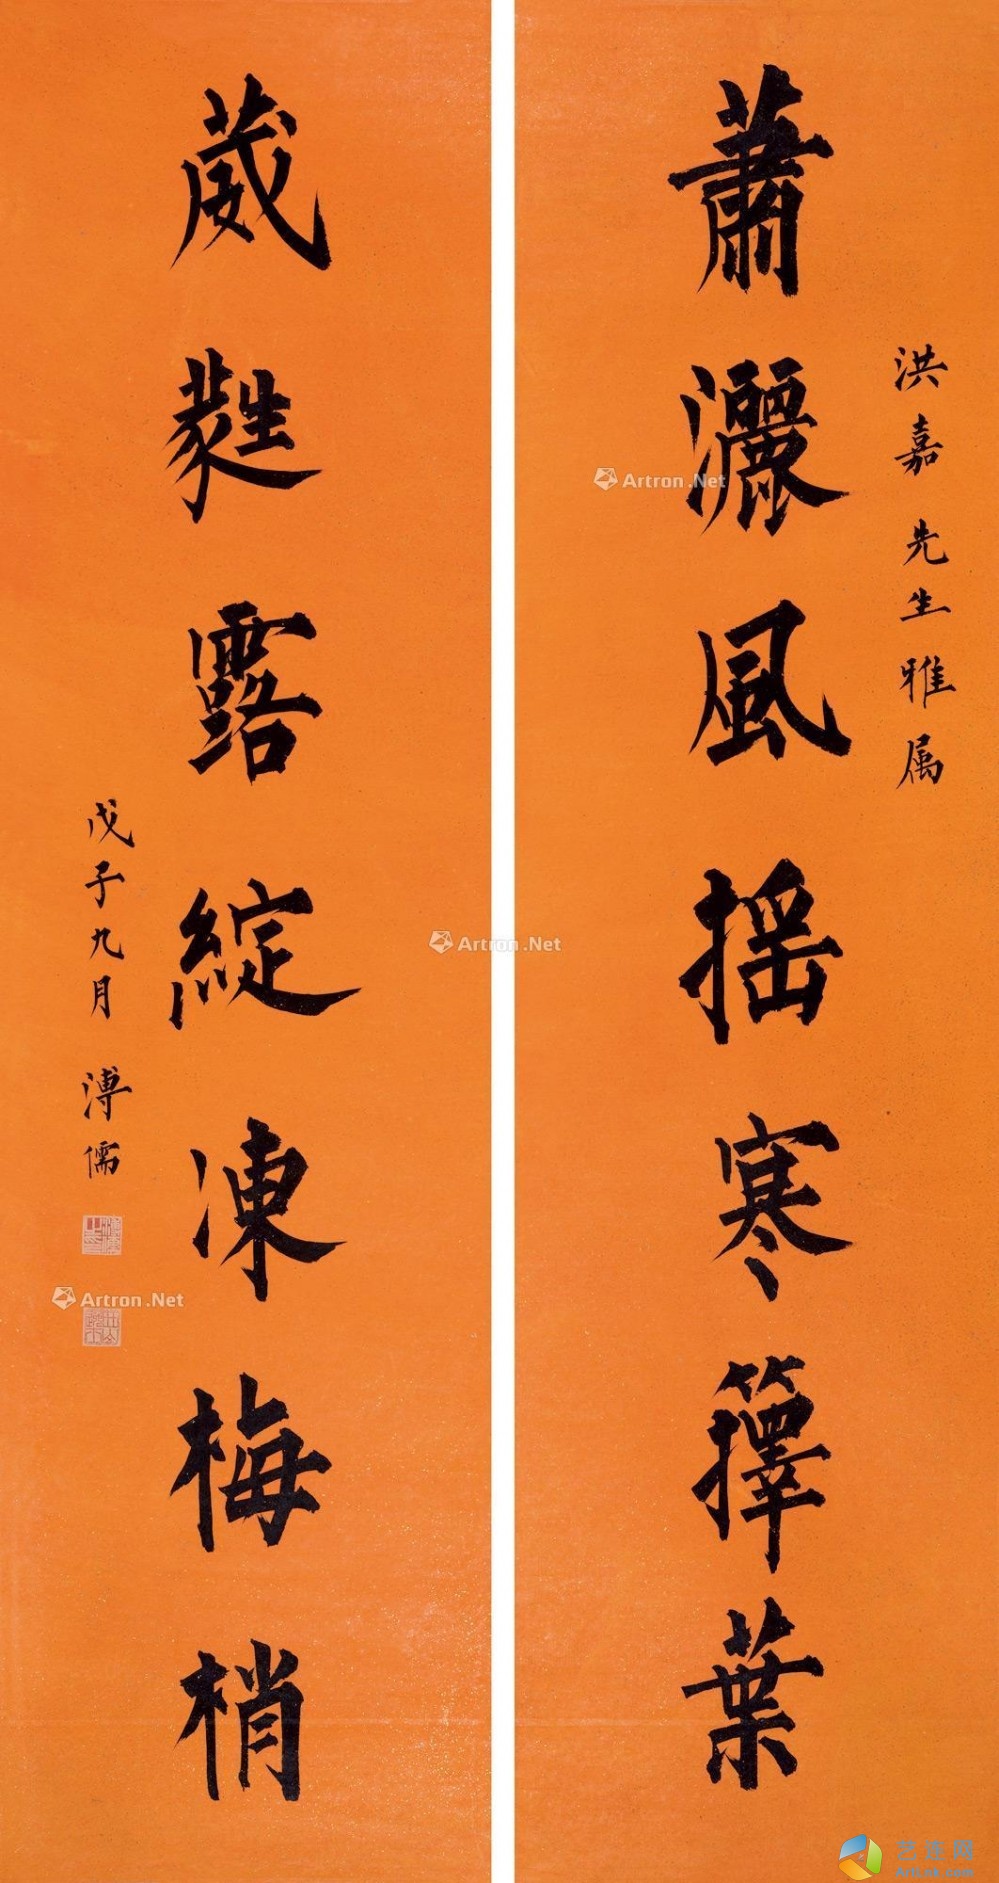 洪嘉先生雅属
蕭灑風搖寒籜葉
葳蕤露綻凍梅梢
戊子九月 溥儒
Artron.Net
Artron.Net
Artron.Net
艺连网